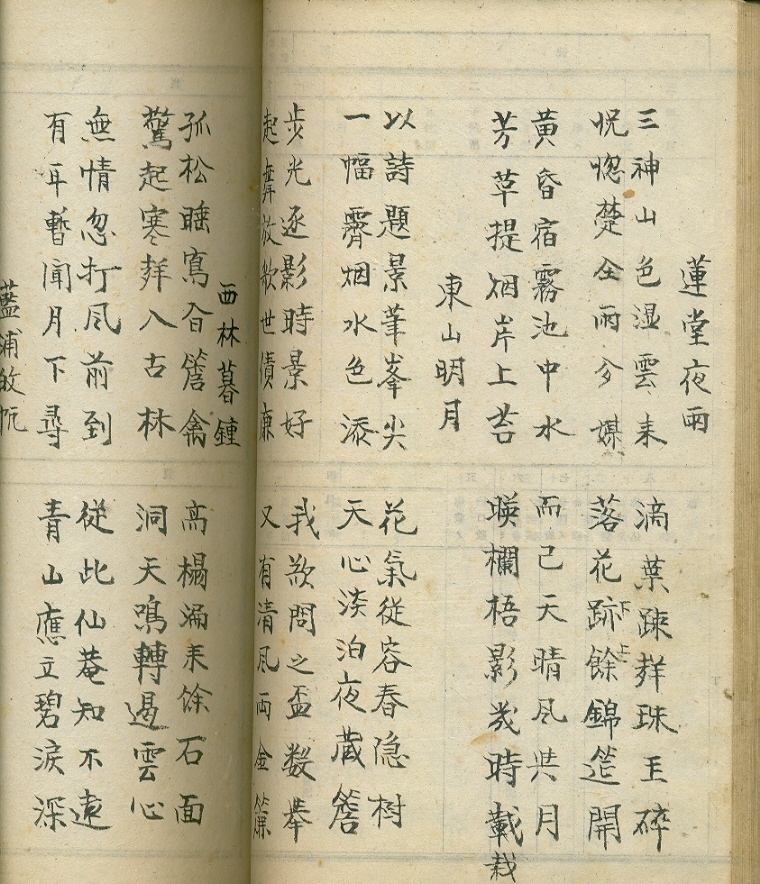 蓮堂夜雨
三神山色湿雲来
滴葉踈拜珠玉碎
怳惚楚台雨兮媒
落花跡餘錦筵開
黄昏宿霧池中水
而已天晴風共月
芳草提烟岸上苔
暎欄梧影幾時載
栽
東山明月
以詩題景筆峯尖
花氣從容春隐樹
一幅霽烟水色添
天心淡泊夜蔵簷
步光逐影時景好
我欲問之盃数舉
起舞放歌世債廉
又有清風両金簾
西林暮鍾
孤松睡鳥宿簷禽
高榻漏来餘石面
驚起寒拜入古林
洞天鳴轉遏雲心
無情忽打風前到
從此仙菴知不遠
有耳暫聞月下尋
青山應立碧淚深
藍浦皈帆